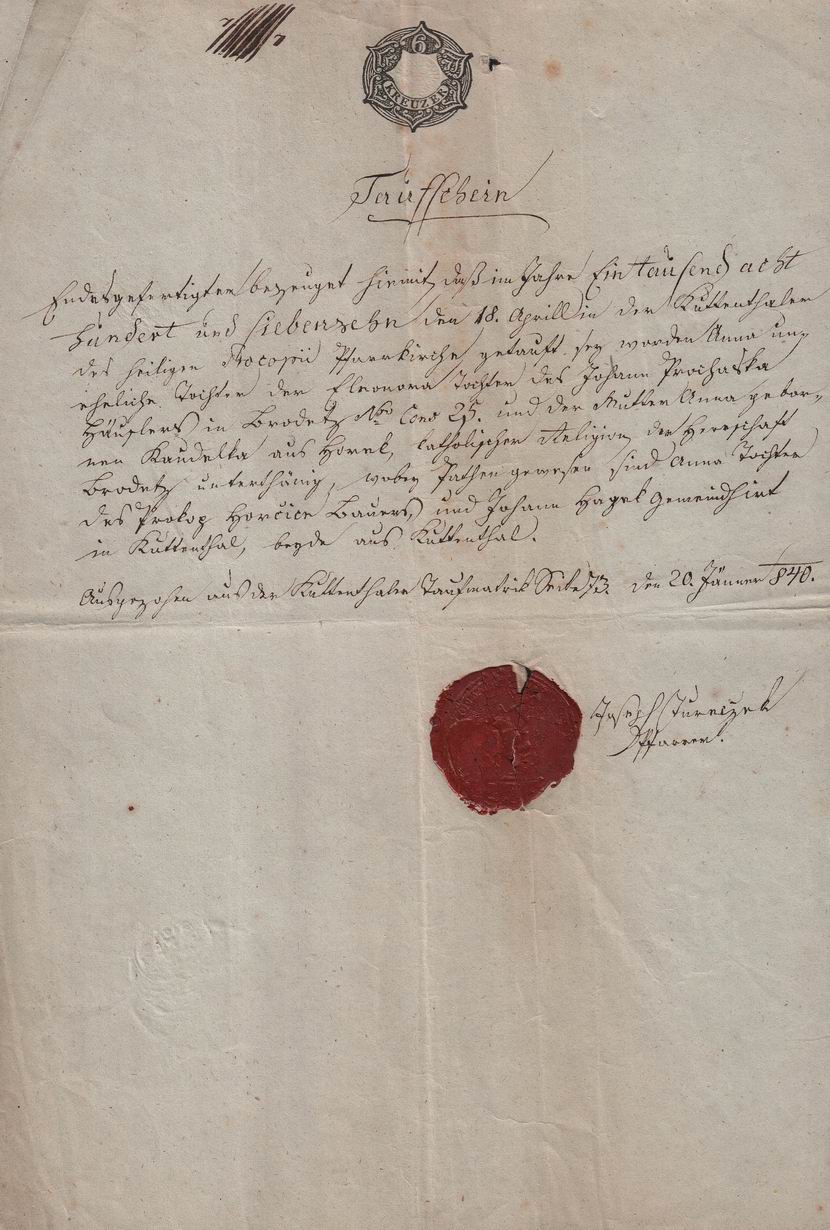 6
KREUZER
Taufschein
Endesgefertigter bezeuget hiemit, daß im Jahre Ein tausend acht
hundert und siebenzehn den 18. Aprill in der Kuttenthaler
des heiligen Procopii Pfarrkirche getauft sey worden Anna un-
eheliche Tochter der Eleonora Tochter des Johann Prochaska
Häuslers in Brodetz Nro Cons 25. und der Mutter Anna gebor-
nen Kaudelka aus Horek, Catholischer Religion, der Herrschaft
Brodetz unterthänig, wobey Pathen gewesen sind Anna Tochter
des Prokop Horcicz Bauers, und Johann Hagek Gemeindhirt
in Kuttenthal, beyde aus Kuttenthal.
Ausgezohen aus der Kuttenthaler Taufmatrik Seite den 20. Jänner 1840.
Joseph
Pfarrer.